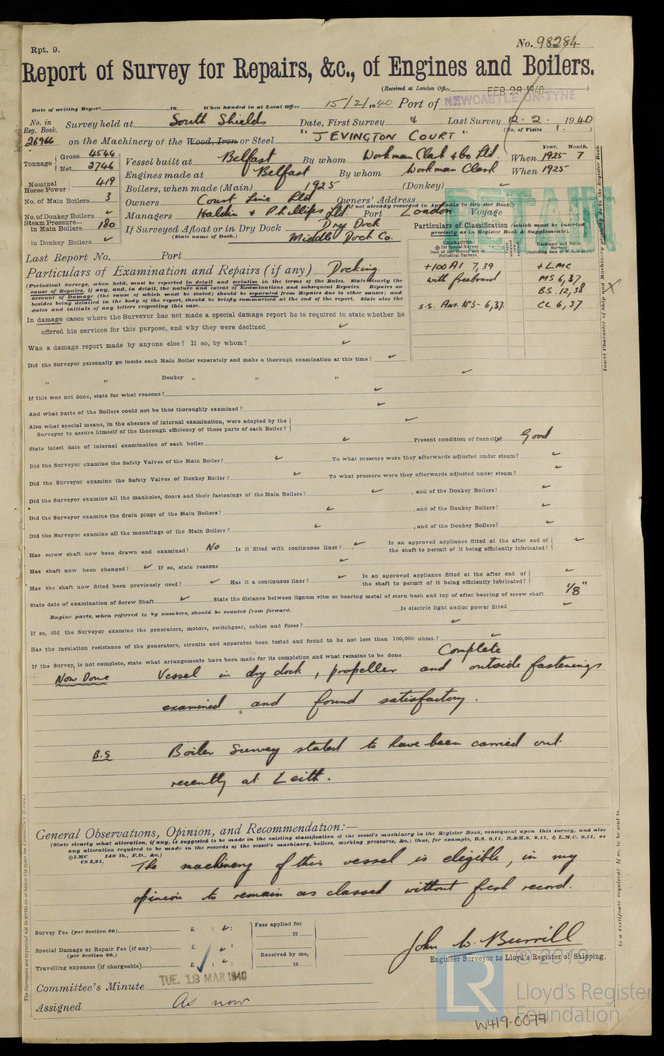 Rpt. 9.
No. 98284
Report of Survey for Repairs, &c., of Engines and Boilers.
(Received at London Office FEB 28 1940
Date of writing Report 19 When handed in at Local Office 15/2/1940 Port of NEWCASTLE-ON-TYNE
No. in Reg. Book. Survey held at South Shields Date, First Survey & Last Survey 12-2-1940
(No. of Visits 1.)
26966 on the Machinery of the Wood, Iron or Steel "JEVINGTON COURT"
Tonnage Gross 4544 Net 2746
Vessel built at Belfast By whom Workman Clark & Co Ltd. When 1925 Year. Month. 7
Engines made at Belfast By whom Workman Clark When 1925
Nominal Horse Power 419 Boilers, when made (Main) 1925 (Donkey) ✓
No. of Main Boilers 3 Owners Court Line Ltd Owners' Address
(If not already recorded in Appendix to Register Book.)
No. of Donkey Boilers ✓ Managers Haldin & Phillips Ltd Port London Voyage
Steam Pressure in Main Boilers 180 If Surveyed Afloat or in Dry Dock Dry Dock
in Donkey Boilers ✓ (State name of Dock.) Middle Dock Co.
Particulars of Classification (which must be inserted precisely as in Register Book & Supplements).
+100 A1 7,39 +LMC
with freeboard MS 6,37
BS. 12,38
S.S. No 3-6,37 CL 6,37
Last Report No. Port
Particulars of Examination and Repairs (if any) Docking
(Periodical Surveys, when held, must be reported in detail and seriatim in the terms of the Rules. State clearly the
In damage cases where the Surveyor has not made a special damage report he is required to state whether he
offered his services for this purpose, and why they were declined ✓
Was a damage report made by anyone else? If so, by whom? ✓
Did the Surveyor personally go inside each Main Boiler separately and make a thorough examination at this time? ✓
" " Donkey " " " ✓
If this was not done, state for what reasons? ✓
And what parts of the Boilers could not be thus thoroughly examined? ✓
Also what special means, in the absence of internal examination, were adopted by the
Surveyor to assure himself of the thorough efficiency of those parts of each Boiler? ✓
State latest date of internal examination of each boiler ✓ Present condition of funnel(s) Good
Did the Surveyor examine the Safety Valves of the Main Boiler? ✓ To what pressure were they afterwards adjusted under steam? ✓
Did the Surveyor examine the Safety Valves of Donkey Boiler? ✓ To what pressure were they afterwards adjusted under steam? ✓
Did the Surveyor examine all the manholes, doors and their fastenings of the Main Boilers? ✓, and of the Donkey Boilers? ✓
Did the Surveyor examine the drain plugs of the Main Boilers? ✓, and of the Donkey Boilers? ✓
Did the Surveyor examine all the mountings of the Main Boilers? ✓, and of the Donkey Boilers? ✓
Has screw shaft now been drawn and examined? No Is it fitted with continuous liner? ✓ Is an approved appliance fitted at the after end of the shaft to permit of it being efficiently lubricated? ✓
Has shaft now been changed? ✓ If so, state reasons ✓
Has the shaft now fitted been previously used? ✓ Has it a continuous liner? ✓ Is an approved appliance fitted at the after end of the shaft to permit of it being efficiently lubricated? ✓
State date of examination of Screw Shaft ✓ State the distance between lignum vitæ or bearing metal of stern bush and top of after bearing of screw shaft 1/8"
Engine parts, when referred to by numbers, should be counted from forward. Is electric light and/or power fitted ✓
If so, did the Surveyor examine the generators, motors, switchgear, cables and fuses? ✓
Has the insulation resistance of the generators, circuits and apparatus been tested and found to be not less than 100,000 ohms? ✓
If the Survey, is not complete, state what arrangements have been made for its completion and what remains to be done Complete
Now Done Vessel in dry dock, propeller and outside fastenings
examined and found satisfactory.
B.S Boiler Survey stated to have been carried out
recently at Leith.
General Observations, Opinion, and Recommendation:—
(State clearly what alteration, if any, is suggested to be made in the existing classification of the vessel's machinery in the Register Book, consequent upon this survey, and also
any alteration required to be made in the records of the vessel's machinery, boilers, working pressures, &c.; thus, for example, B.S. 9,11, B.&M.S. 9,11, & L.M.C. 9,11, or
The machinery of this vessel is eligible, in my
opinion to remain as classed without fresh record.
Survey Fee (per Section 29) £ : ✓ : Fees applied for
Special Damage or Repair Fee (if any) £ : ✓ : 19
(per Section 29.)
Travelling expenses (if chargeable) £ : ✓ : Received by me, 19
John W. Burrill
Engineer Surveyor to Lloyd's Register of Shipping.
Committee's Minute TUE. 12 MAR 1940
Assigned As now
LR
© 2019
Lloyd's Register
Foundation
W419-0077